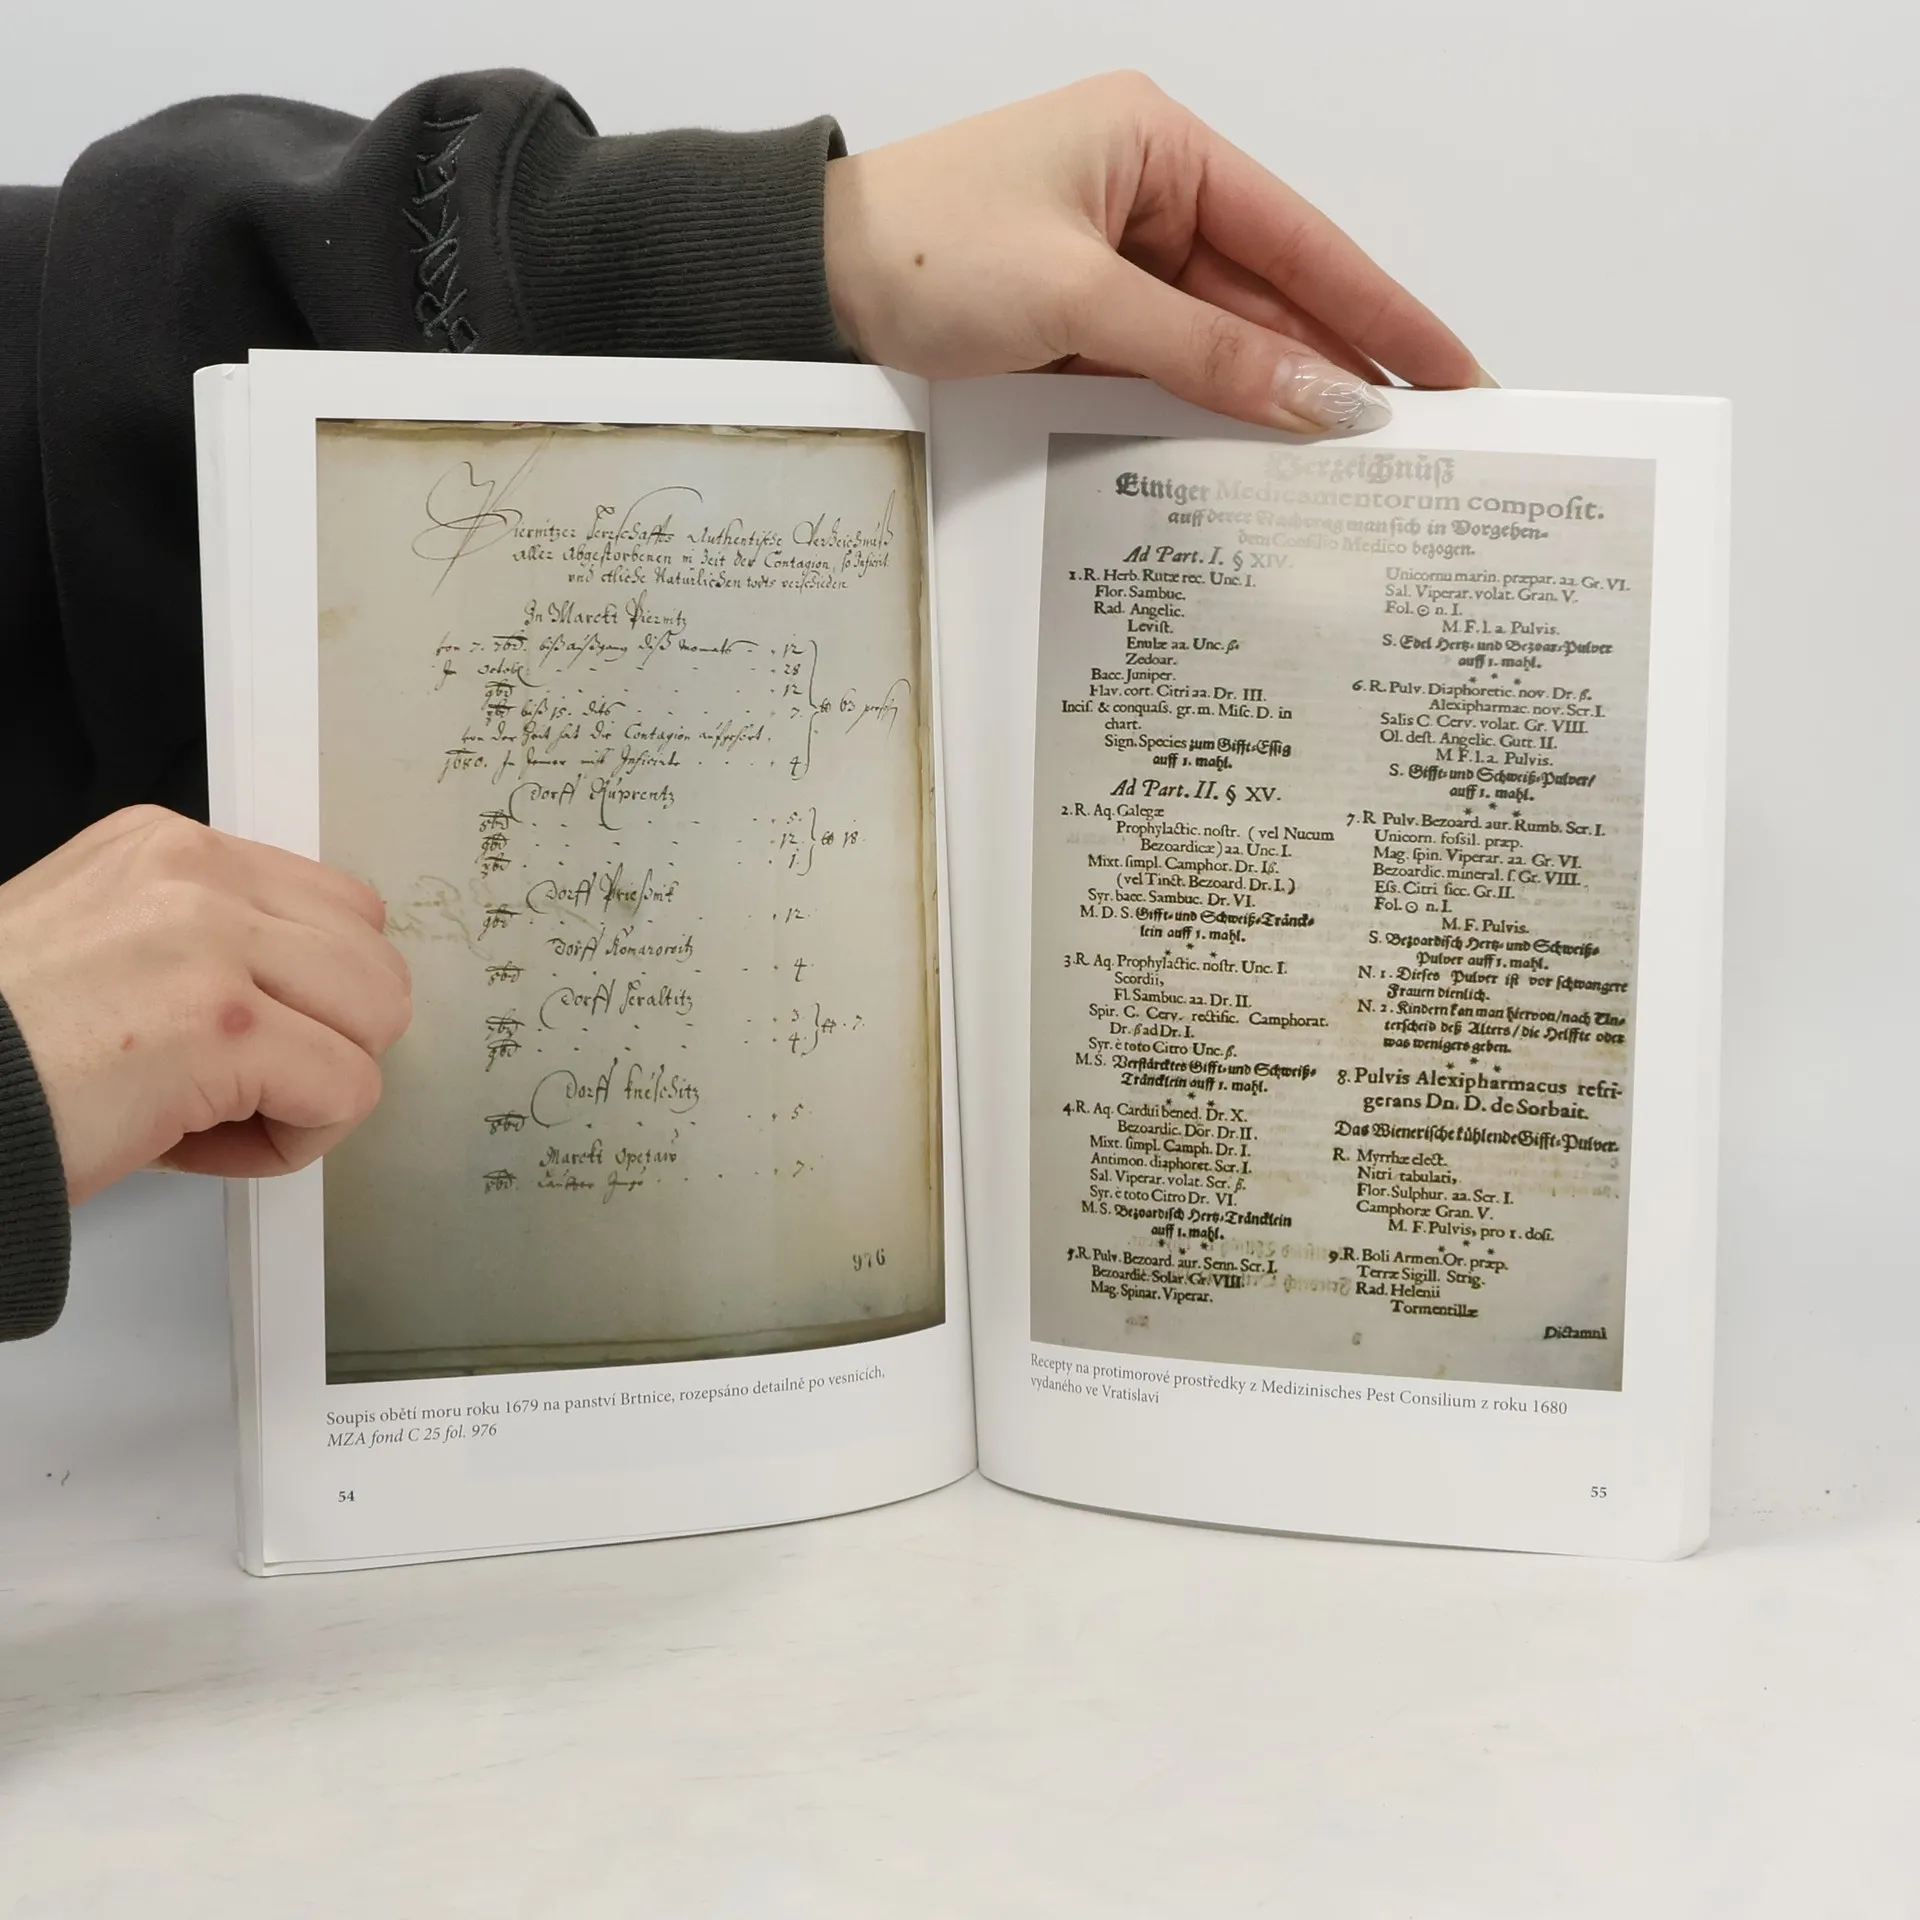 Piernitzer Herrschaffts Authentische Verzeichnuß
aller Abgestorbenen in Zeit der Contagion, so Inficirt
und etliche Natürlichen todts verschieden
In Marckt Piernitz
von 7. 7br. biß außgang diß monats - 12
In Octobr. - - - 28
9br. - - - 12
biß 15. dits - - - 7.
63
von der Zeit hat die Contagion auffgehört.
1680. In Jenner - - - 4
Dorff Ruprentz
8br. - - - 5.
9br. - - - 12.
1.
18.
Dorff Prießnik
9br. - - - 12.
Dorff Komarowitz
8br. - - - 4
Dorff Heraltitz
3.
9br. - - - 4.
7.
Dorff Kneschitz
8br. - - - 5
Marckt Opetaw
8br. - - - 7.
976
Soupis obětí moru roku 1679 na panství Brtnice, rozepsáno detailně po vesnicích,
MZA fond C 25 fol. 976
54
Verzeichnüß
Einiger Medicamentorum composit.
auff derer man sich in Vorgehen-
dem Consilio Medico bezogen.
Ad Part. I. § XIV.
1. R. Herb. Rutæ rec. Unc. I.
Flor. Sambuc.
Rad. Angelic.
Levist.
Enulæ aa. Unc. ß.
Zedoar.
Bacc. Juniper.
Flav. cort. Citri aa. Dr. III.
Incis. & conquass. gr. m. Misc. D. in
chart.
Sign. Species zum Gifft-Essig
auff 1. mahl.
Ad Part. II. § XV.
2. R. Aq. Galegæ
Prophylactic. nostr. (vel Nucum
Bezoardicæ) aa. Unc. I.
Mixt. simpl. Camphor. Dr. Iß.
(vel Tinct. Bezoard. Dr. I.)
Syr. bacc. Sambuc. Dr. VI.
M. D. S. Gifft- und Schweiß-Tränck-
lein auff 1. mahl.
* *
3. R. Aq. Prophylactic. nostr. Unc. I.
Scordii,
Fl. Sambuc. aa. Dr. II.
Spir. C. Cerv. rectific. Camphorat.
Dr. ß ad Dr. I.
Syr. è toto Citro Unc. ß.
M. S. Verstärcktes Gifft- und Schweiß-
Träncklein auff 1. mahl.
* * *
4. R. Aq. Cardui bened. Dr. X.
Bezoardic. Dor. Dr. II.
Mixt. simpl. Camph. Dr. I.
Antimon. diaphoret. Scr. I.
Sal. Viperar. volat. Scr. ß.
Syr. è toto Citro Dr. VI.
M. S. Bezoardisch Hertz-Träncklein
auff 1. mahl.
* * *
5. R. Pulv. Bezoard. aur. Senn. Scr. I.
Bezoardic. Solar. Gr. VIII.
Mag. Spinar. Viperar.
Unicornu marin. præpar. aa. Gr. VI.
Sal. Viperar. volat. Gran. V.
Fol. ☉ n. I.
M. F. l. a. Pulvis.
S. Edel Hertz- und Bezoar-Pulver
auff 1. mahl.
* * *
6. R. Pulv. Diaphoretic. nov. Dr. ß.
Alexipharmac. nov. Scr. I.
Salis C. Cerv. volat. Gr. VIII.
Ol. dest. Angelic. Gutt. II.
M. F. l. a. Pulvis.
S. Gifft- und Schweiß-Pulver/
auff 1. mahl.
* * *
7. R Pulv. Bezoard. aur. Rumb. Scr. I.
Unicorn. fossil. præp.
Mag. spin. Viperar. aa. Gr. VI.
Bezoardic. mineral. s. Gr. VIII.
Ess. Citri sicc. Gr. II.
Fol. ☉ n. I.
M. F. Pulvis.
S. Bezoardisch Hertz- und Schweiß-
Pulver auff 1. mahl.
N. 1. Dieses Pulver ist vor schwangere
Frauen dienlich.
N. 2. Kindern kan man hiervon/nach Un-
terscheid deß Alters/die Helffte oder
was wenigers geben.
* * *
8. Pulvis Alexipharmacus refri-
gerans Dn. D. de Sorbait.
Das Wienerische kühlende Gifft-Pulver.
R. Myrrhæ elect.
Nitri tabulati,
Flor. Sulphur. aa. Scr. I.
Camphoræ Gran. V.
M. F. Pulvis, pro 1. dosi.
* * *
9. R. Boli Armen. Or. præp.
Terræ Sigill. Strig.
Rad. Helenii
Tormentillæ
Dictamni
Recepty na protimorové prostředky z Medizinisches Pest Consilium z roku 1680
vydaného ve Vratislavi
55